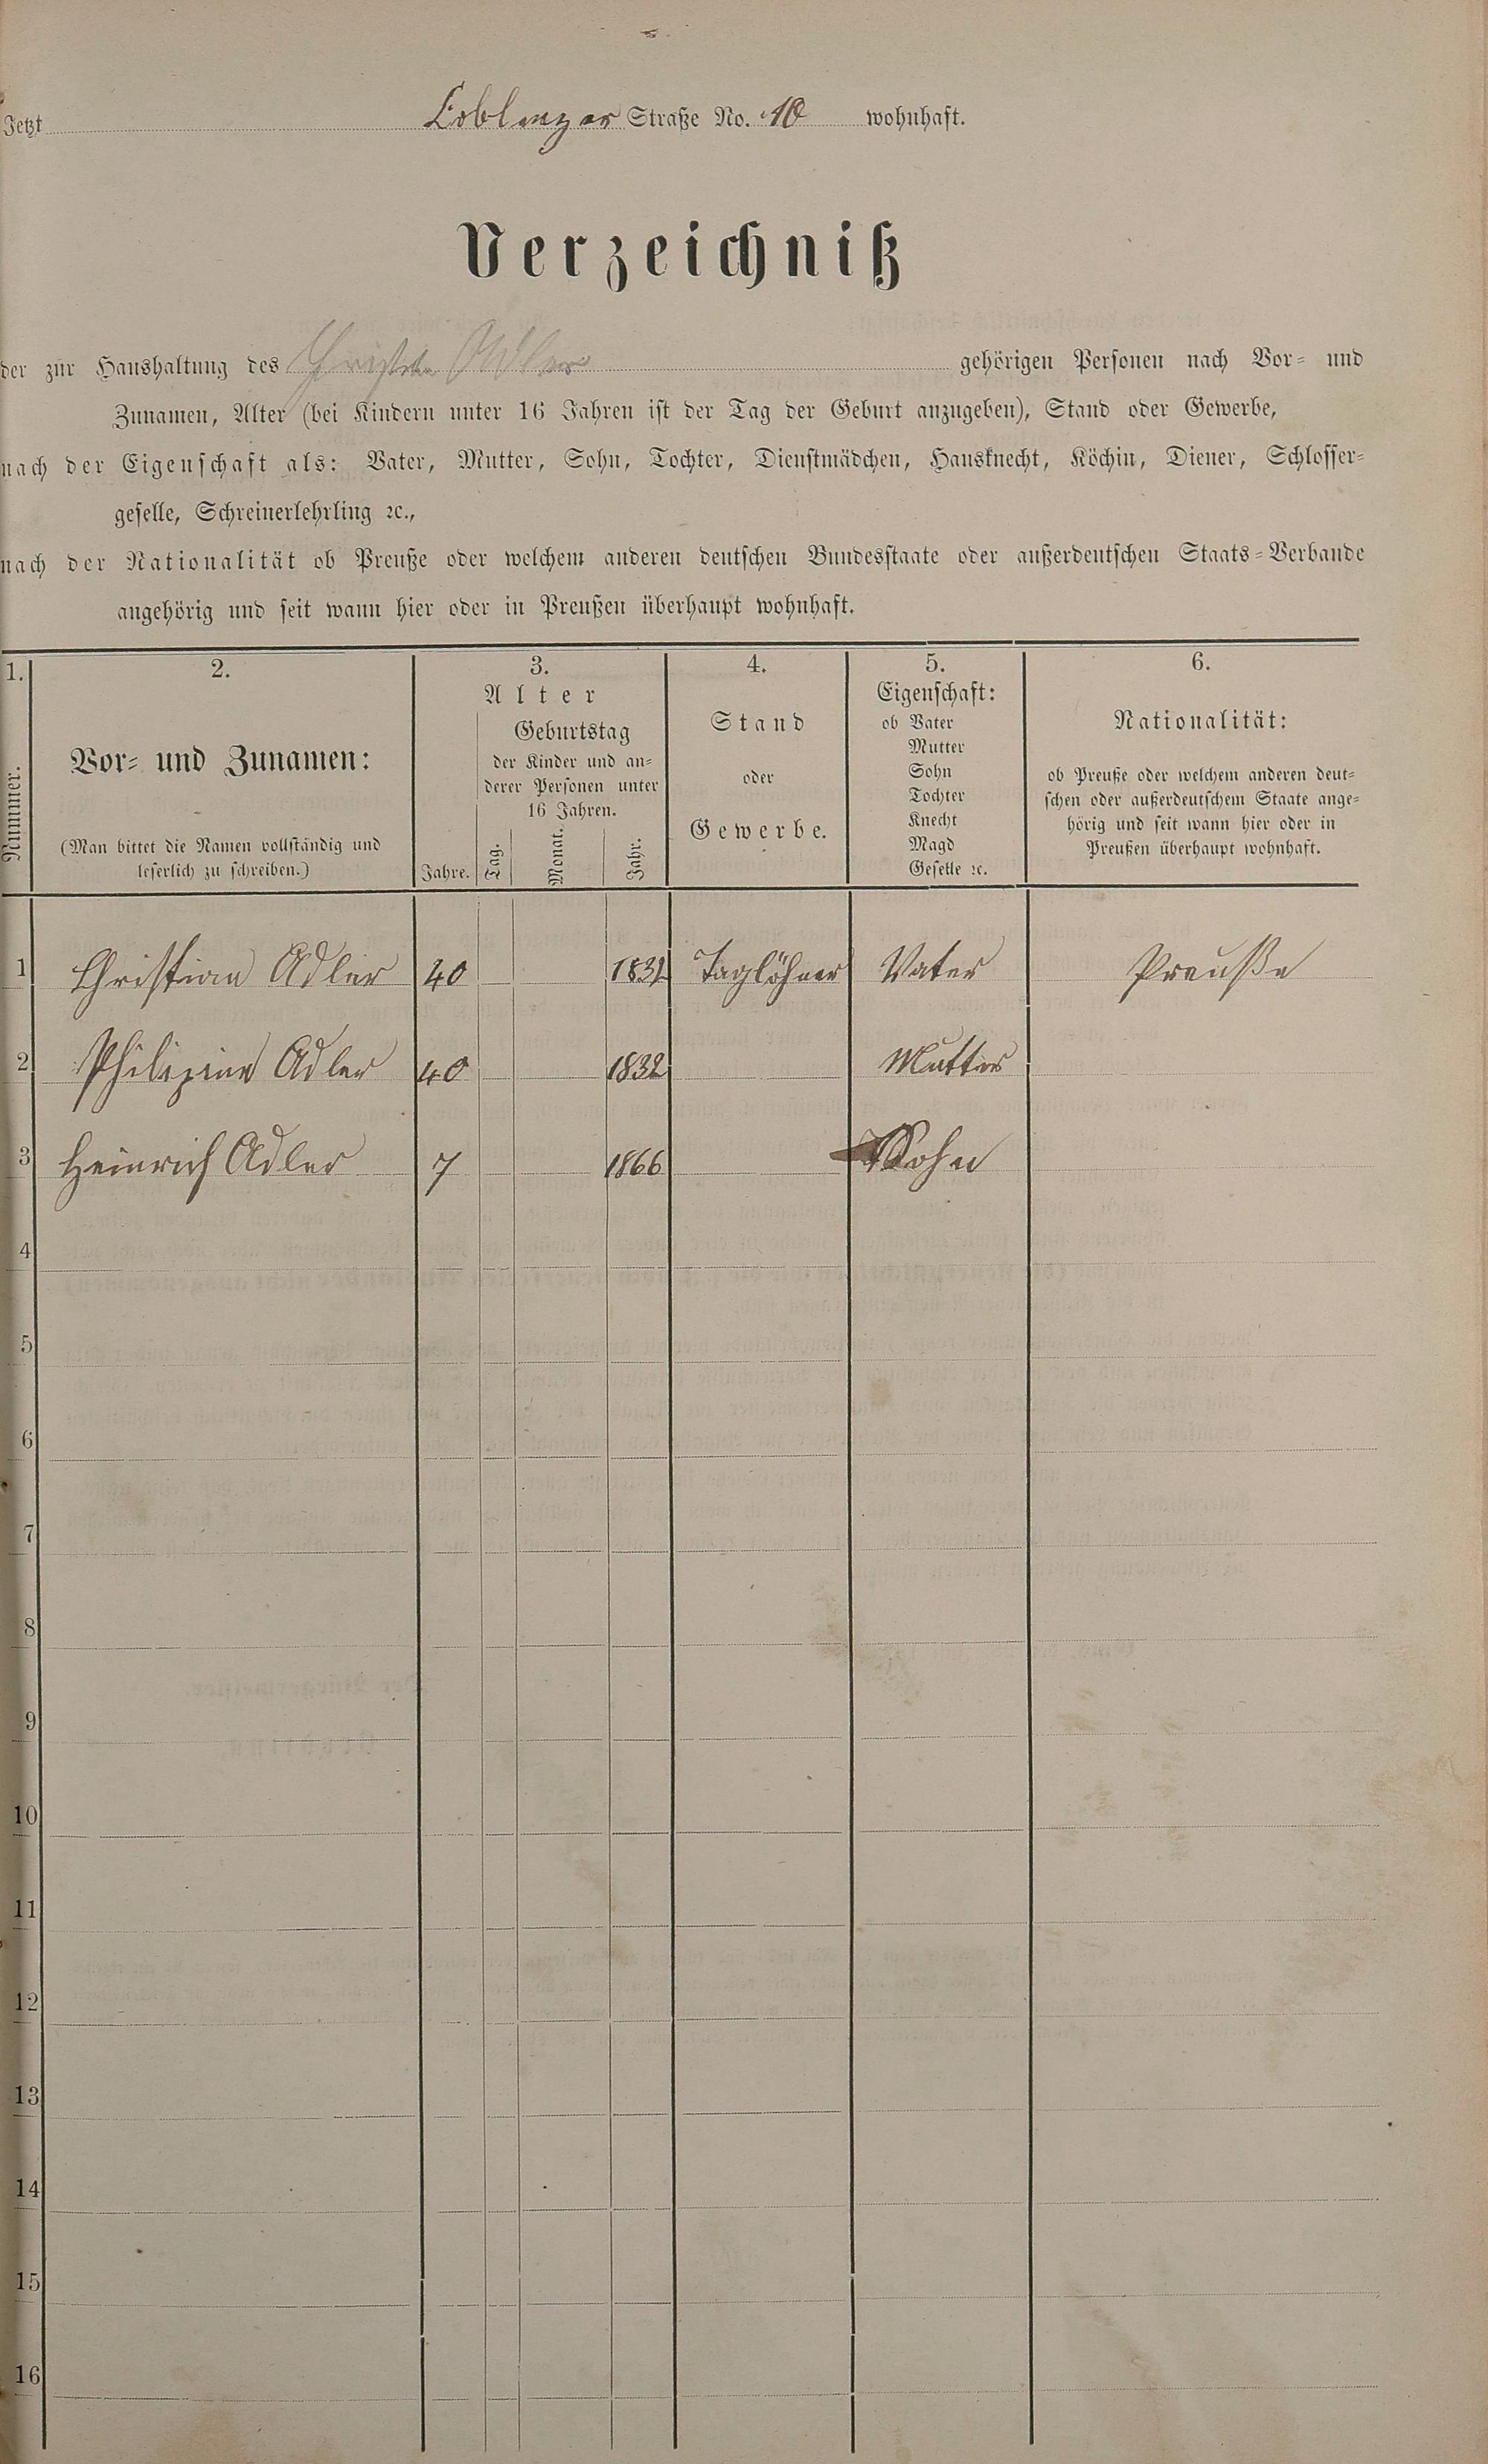 Jetzt Coblenzer Straße No. 10 wohnhaft.
Verzeichniß
der zur Haushaltung des Adler gehörigen Personen nach Vor- und
Zunamen, Alter (bei Kindern unter 16 Jahren ist der Tag der Geburt anzugeben), Stand oder Gewerbe,
nach der Eigenschaft als: Vater, Mutter, Sohn, Tochter, Dienstmädchen, Hausknecht, Köchin, Diener, Schlosser-
geselle, Schreinerlehrling ꝛc.,
nach der Nationalität ob Preuße oder welchem anderen deutschen Bundesstaate oder außerdeutschen Staats-Verbande
angehörig und seit wann hier oder in Preußen überhaupt wohnhaft.
1.
Nummer.
2.
Vor- und Zunamen:
(Man bittet die Namen vollständig und
leserlich zu schreiben.)
3.
Alter
Jahre.
Geburtstag
der Kinder und an-
derer Personen unter
16 Jahren.
Tag. Monat. Jahr.
4.
Stand
oder
Gewerbe.
5.
Eigenschaft:
ob Vater
Mutter
Sohn
Tochter
Knecht
Magd
Geselle ꝛc.
6.
Nationalität:
ob Preuße oder welchem anderen deut-
schen oder außerdeutschem Staate ange-
hörig und seit wann hier oder in
Preußen überhaupt wohnhaft.
1 Christian Adler 40 Taglöhner Vater Preuße
2 Philipine Adler 40 1832 Mutter
3 Heinrich Adler 7 1866 Sohn
4
5
6
7
8
9
10
11
12
13
14
15
16